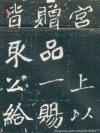 宮上以
贈品一賜
皆取公給